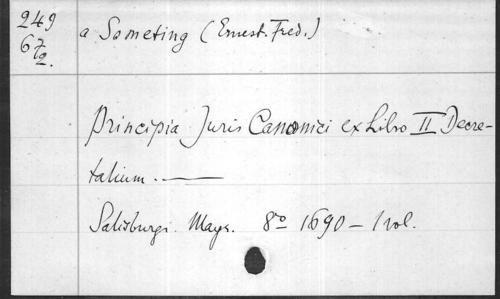 249
67
2.
a Someting (Ernest. Fred.)
Principia Juris Canonici ex Libro II Decre-
talium. —
Salisburgi. Mayr. 8º 1690 — 1 vol.